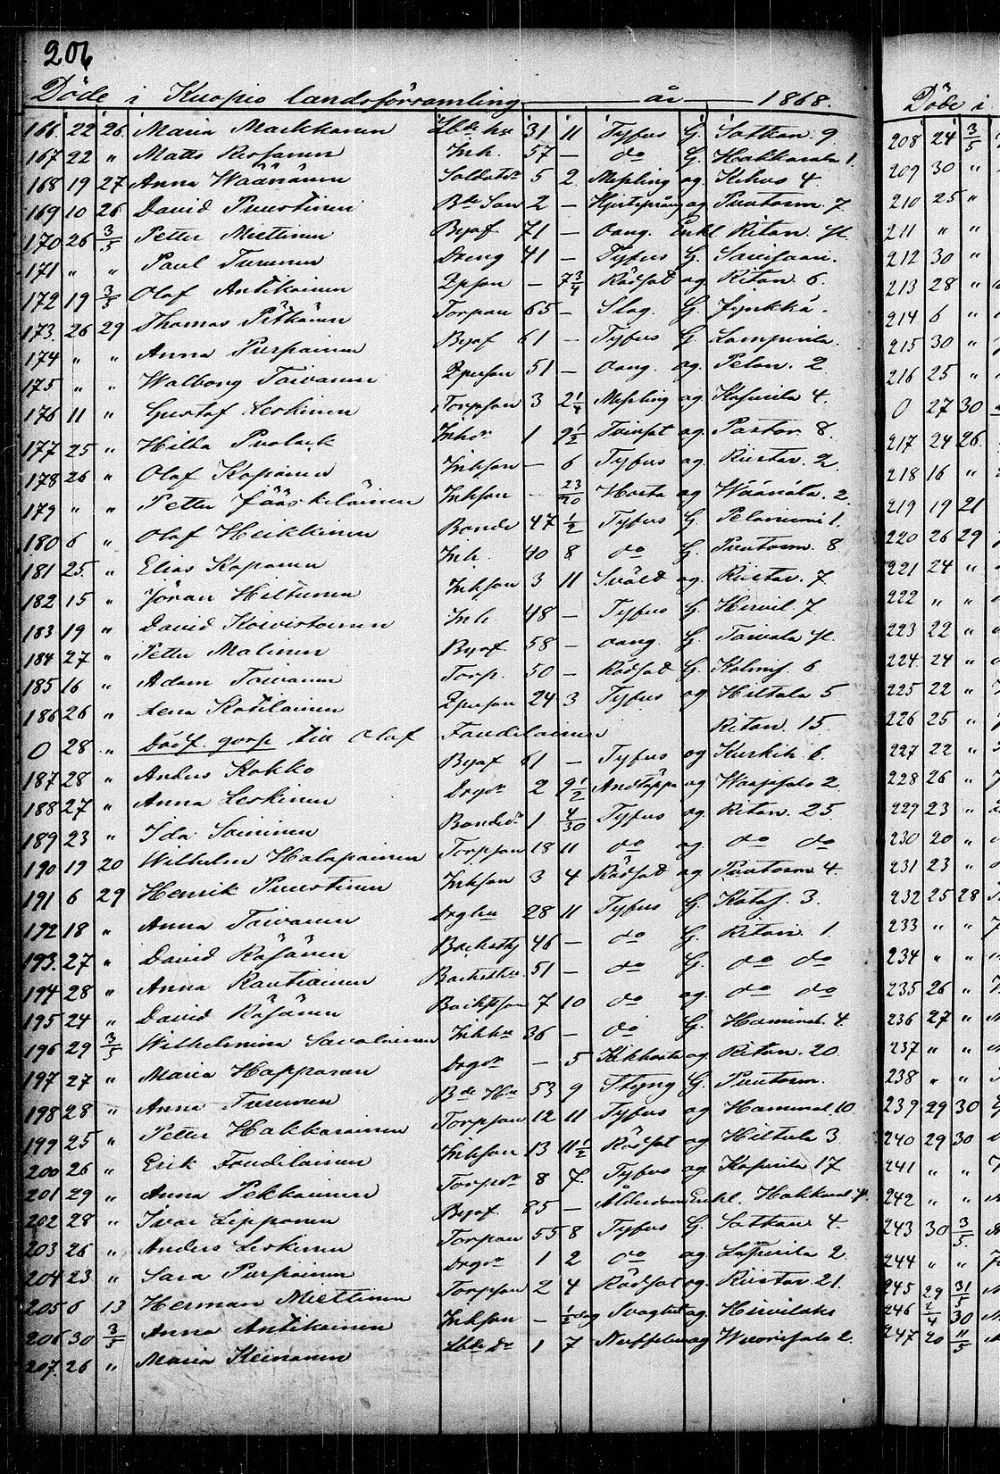 206
Döde i Kuopio landsförsamling år 1868.
166. 22 26. Maria Markkanen Lbte hu 31 11 Tyfus G. Sotkan. 9
167 22 " Matts Inh. 57 — do G. Hakkarala 1.
168 19 27 Anna Wäänänen Soldatdr 5 2 Messling og. Kehvo 4.
169 10 26 David Puustinen Bde Son 2 — og Puutosm. 7.
170 26 3/5 Petter Miettinen Byaf 71 — oang. Enkl Riton.
171 " " Paul Turunen Dreng 41 — Tyfus G. Savisaari.
172 19 3/5 Olof Antikainen — 7 3/4 Rödsot og. Riton. 6.
173. 26 29 Thomas Pitkänen Torpan 65 — Slag. G. Jynkkä.
174 " " Anna Purpainen Byaf 61 — Tyfus G Lamperila.
175 " " Walborg Toivanen 51 — oang. og. Pelon. 2
176 11 " Gustaf Leskinen Torpson 3 2 1/4 Messling og Kasurila 4.
177 25 " Hilda Puolack Inhdr 1 9 1/2 Tvinsot og. Pastor 8.
178 26 " Olof Koponen Inhson — 6 Tyfus og. Riistav. 2.
179 " " Petter Jääskeläinen Inhson — 23/30 Hosta og Wäänälä. 2
180 6 " Olof Heikkinen Bonde 47 1/2 Tyfus G. Pelonniemi 1.
181 25. " Elias Koponen Inh. 40 8 do G. Puutosm. 8.
182 15 " Jöran Hiltunen Inhson 3 11 Svält og. Riistav. 7
183 19 " David Koivistoinen Inh. 48 — Tyfus G Hirvil 7
184 27 " Petter Malinen Byaf 58 — oang. G. Toivala
185 16 " Adam Toivanen Torp. 50 — Rödsot G. Kolmis. 6
186 26 " Lena Kotilainen 24 3 Tyfus og Hiltula 5
0 28 " Dödf. gosse till Olof Taudilainen Riton. 15.
187 28 " Anders Kokko Byaf 61 — Tyfus og Kurkih. 6.
188 27 " Anna Leskinen Drgdr 2 9 1/2 Andtäppa og 2
189 23 " Ida Soininen Bondedr 1 4/30 Tyfus og. Riton. 25.
190 19 20 Wilhelm Halapainen Torpson 18 11 do og do do
191 6 29 Henrik Puustinen Inhson 3 4 Rödsot og Puutosm 4.
192 18 " Anna Toivanen Drghu 28 11 Tyfus G. Kotas. 3.
193. 27 " David Räsänen 46 — do G. Riton. 1.
194 28 " Anna Rautiainen 51 — do G. do do
195 24 " David Räsänen 7 10 do og do do
196 29 3/5 Wilhelmina Savolainen Inhhu 36 — do G. Haminal. 4.
197 27 " Maria Happonen Drgdr — 5 Kikhosta og Riton. 20
198 28 " Anna Turunen Bde Hu 53 9 Styng G. Puutosm.
199 25 " Petter Hakkarainen Torpson 12 11 Tyfus og Haminal. 10
200 26 " Erik Taudilainen Inhson 13 11 1/2 Rödsot og Hiltula 3
201 29 " Anna Pekkarinen Torpdr 8 7 Tyfus og Kasurila 17
202 28 " Ivar Lipponen Byaf 85 — Ålderdom Enkl. Hakkaral
203 26 " Anders Leskinen Torpan 55 8 Tyfus G. Sotkan 4.
204 23 " Sara Purpainen Drgdr 1 2 do og Lapinla 2
205 6 13 Herman Miettinen Torpson 2 4 Rödsot og. Riistav 21.
206 30 3/5 Anna Antikainen Inhson — 1/2 dag Svaghet og. Hirvilaks
207. 26 " Maria Keinänen Lbte dr 1 7 og Wuorisalo 2.
Döde i
208 24 3/5
209 30 "
210 25 "
211 " "
212 30 "
213 28 "
214 6 "
215 30 "
216 25 "
0 27 30
217 24 26
218 16 "
219 19 21
220 26 29
221 24 "
222 " "
223 22 "
224 24 "
225 22 "
226 25 "
227 22 "
228 26 "
229 23 "
230 20 "
231 23 "
232 25 28
233 " "
234 " "
235 26 "
236 27 "
237 " "
238 " "
239 29 30
240 29 30
241 " "
242 " "
243 30 3/5
244 " "
245 29 31/5
246 2/4 30
247 20 11/5